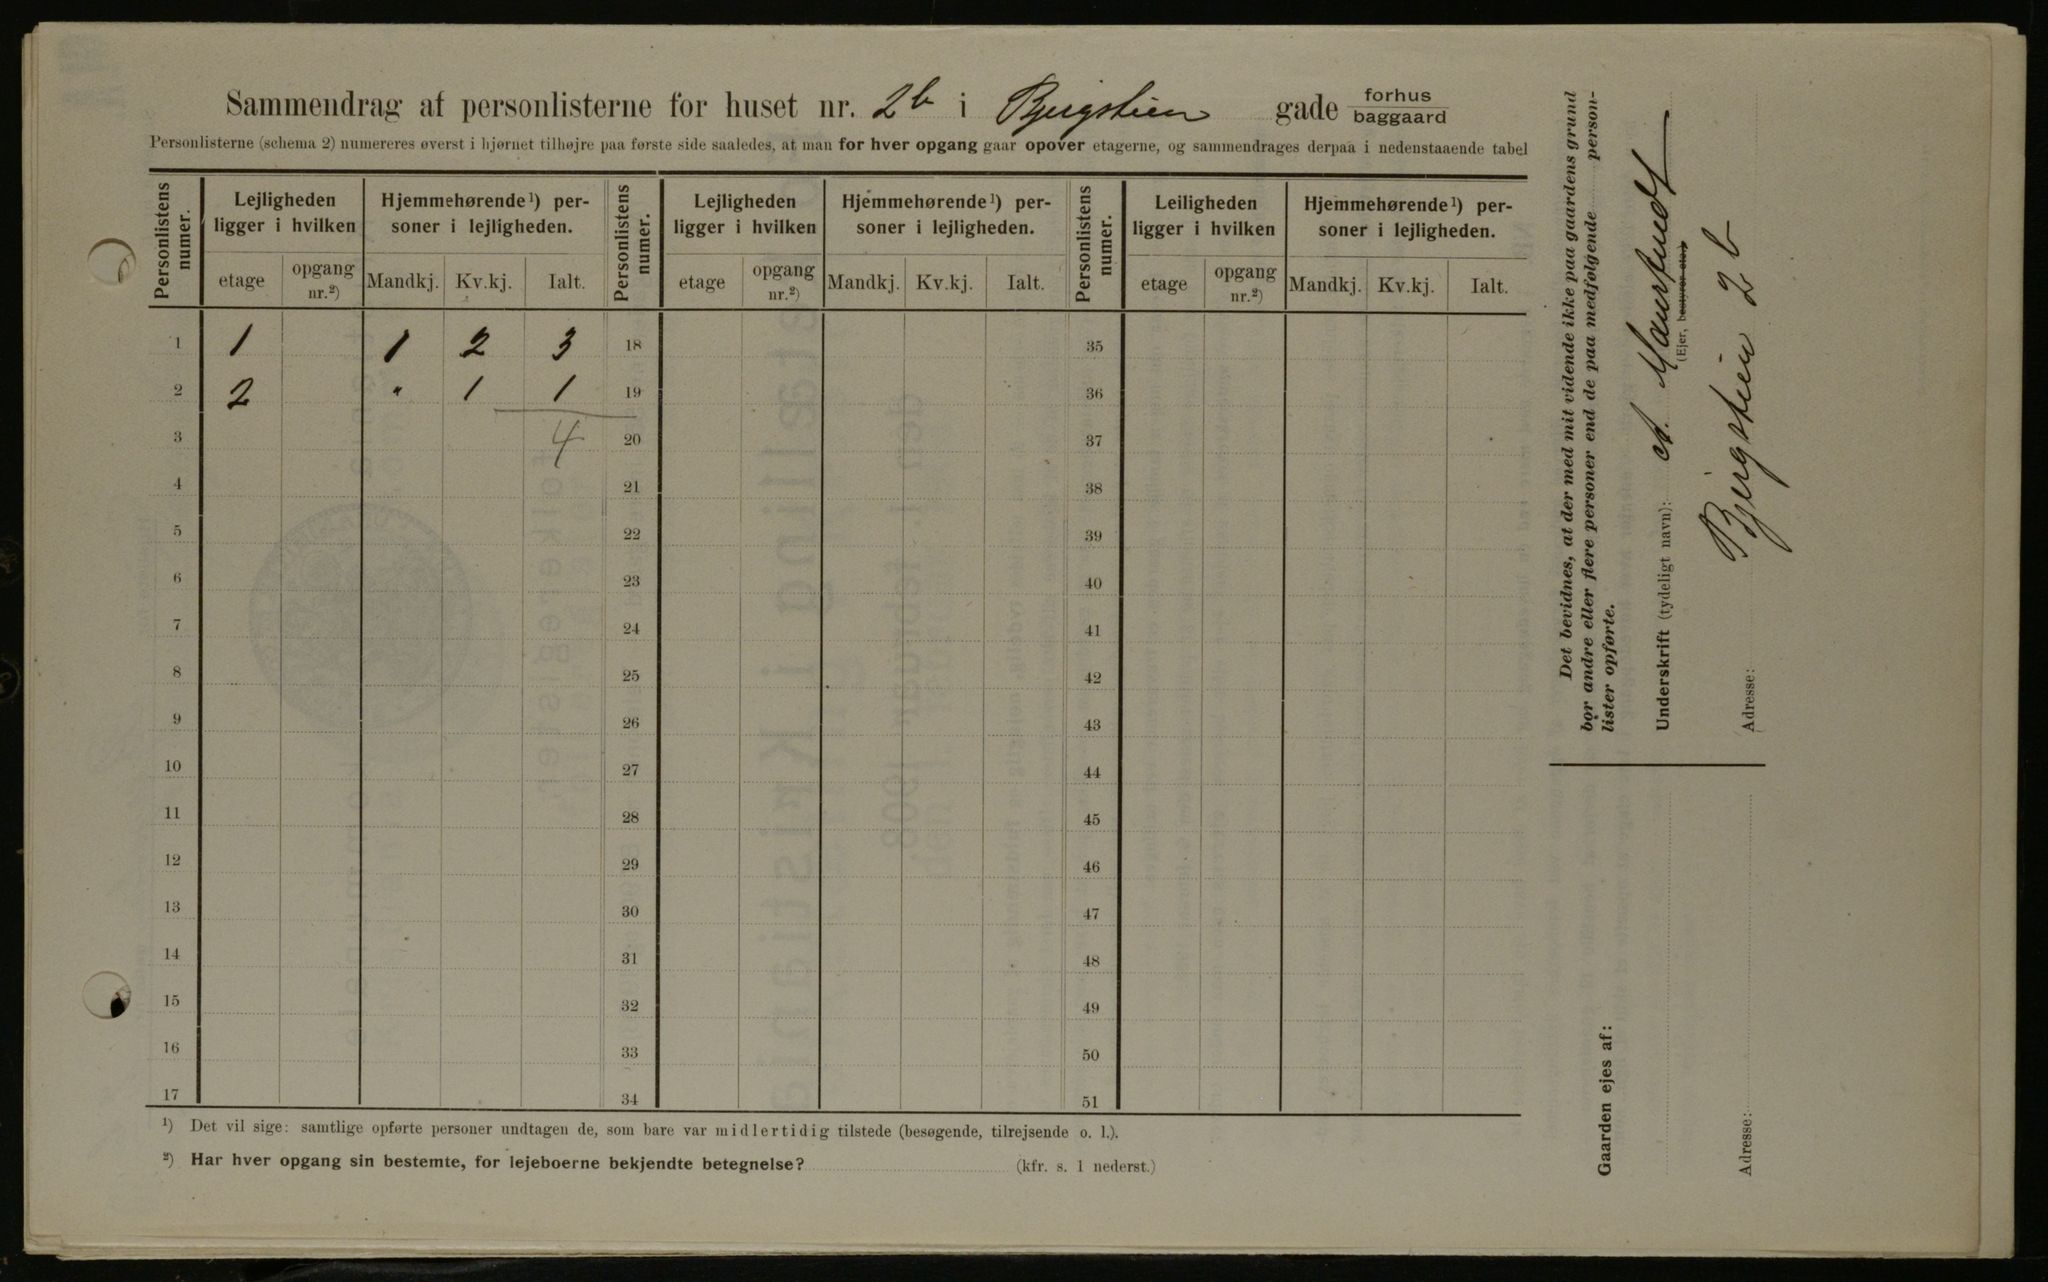 Sammendrag af personlisterne for huset nr. 2b i Bjergstien gade forhus baggaard
Personlisterne (schema 2) numereres øverst i hjørnet tilhøjre paa første side saaledes, at man for hver opgang gaar opover etagerne, og sammendrages derpaa i nedenstaaende tabel
Personlistens numer. Lejligheden ligger i hvilken Hjemmehørende¹) personer i lejligheden. Personlistens numer. Lejligheden ligger i hvilken Hjemmehørende¹) personer i lejligheden. Personlistens numer. Leiligheden ligger i hvilken Hjemmehørende¹) personer i lejligheden.
etage opgang nr.²) Mandkj. Kv.kj. Ialt. etage opgang nr.²) Mandkj. Kv.kj. Ialt. etage opgang nr.²) Mandkj. Kv.kj. Ialt.
1 1 1 2 3 18 35
2 2 " 1 1 19 36
3 4 20 37
4 21 38
5 22 39
6 23 40
7 24 41
8 25 42
9 26 43
10 27 44
11 28 45
12 29 46
13 30 47
14 31 48
15 32 49
16 33 50
17 34 51
¹) Det vil sige: samtlige opførte personer undtagen de, som bare var midlertidig tilstede (besøgende, tilrejsende o. l.).
²) Har hver opgang sin bestemte, for lejeboerne bekjendte betegnelse? (kfr. s. 1 nederst.)
Det bevidnes, at der med mit vidende ikke paa gaardens grund
bor andre eller flere personer end de paa medfølgende person-
lister opførte.
Underskrift (tydeligt navn):
(Ejer, bestyrer etc.)
Adresse: Bjergstien 2b
Gaarden ejes af:
Adresse: